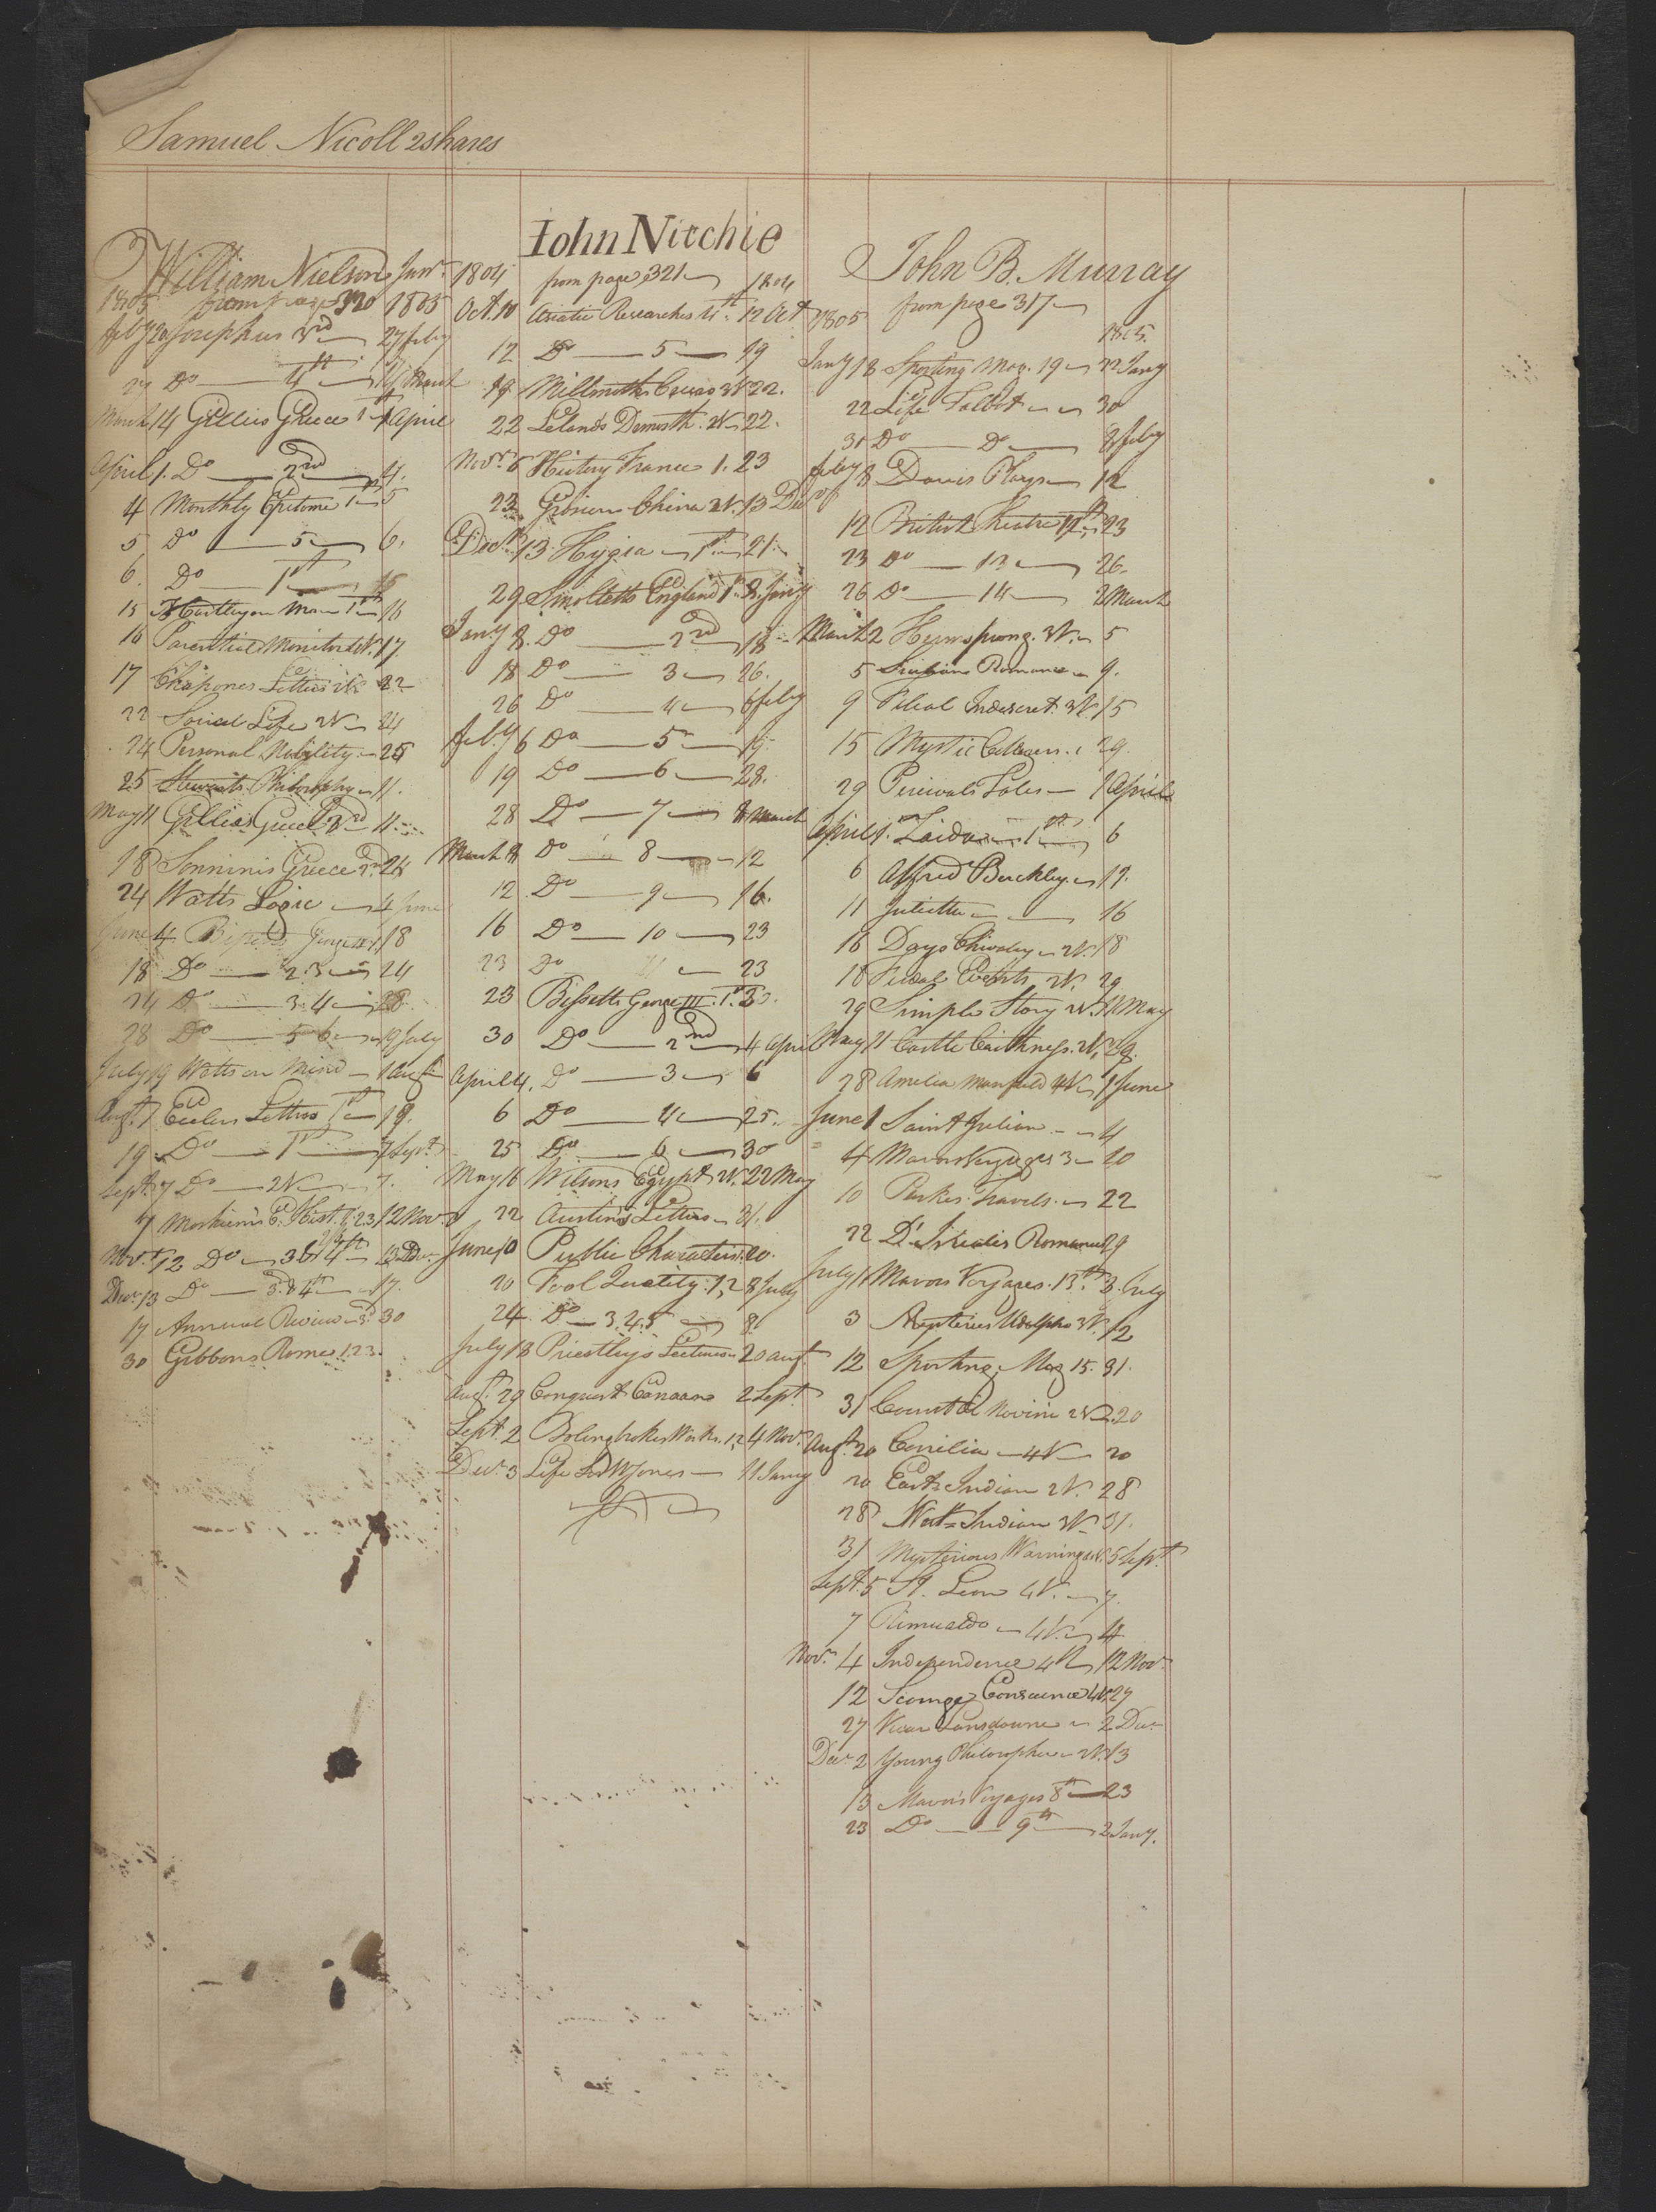 Samuel Nicoll 2 shares
William Nielson Junr.
1805 from page 320 1805
feby 20 Josephus 3rd 27 feby
27 Do 4th 14 March
March 14 Gillies Greece 1st 1 April
April 1. Do 2nd 4.
4 Monthly Epitome 1st 5
5 Do 5 6.
6. Do 1st 15
15 Hartley on Man 1st 16
16 Parential Monitor 2V. 17.
17 Chapones Letters 2V. 22
22 Social Life 2V 24
24 Personal Nobility 25
25 Stewarts Philosophy 11.
May 11 Gillies Greece 3rd 11.
18 Sonninis Greece 24
24 Watts Logic 4 June
June 4 Bissetts George III 1. 18
18 Do 2.3 24
24 Do 3.4 28
28 Do 5 6 19 July
July 19 Watts on Mind 1 Augt
Augt. 1 Eulers Letters 1st 19.
19 Do 1st 7 Sept.
Sept. 7 Do 2V 7.
7 Mosheim's E. Hist. 1.23 12 Nov.
Novr. 12 Do 3 & 4th 13 Decr.
Decr. 13 Do 3. & 4th 17.
17 Annual Review 3d 30
30 Gibbons Rome 1.23.
John Nitchie
1804 from page 321 1804
Oct. 10 Asiatic Researches 4th 12 Oct
12 Do 5 19
19 Millmoths Cicero 3V 22.
22 Lelands Demosth. 2V 22.
Novr. 6 History France 1. 23
23 Grosiers China 2V. 13 Decr
Decr. 13 Hygia 1st 21.
29 Smolletts England 1st 8. Jany
Jany 8. Do 2nd 18
18 Do 3 26.
26 Do 4 6 feby
feby 6 Do 5 19.
19 Do 6 28.
28 Do 7 8 March
March 8 Do 8 12
12 Do 9 16.
16 Do 10 23
23 Do 11 23
23 Bissetts George III. 1st 30.
30 Do 2nd 4 April
April 4. Do 3 6
6 Do 4 25.
25 Do 6 30
May 16 Wilsons Egypt 2V. 22 May
22 Austin's Letters 31.
June 10 Public Characters 20.
20 Fool Quality. 1,2 8 July
24 Do 3.4.5 8
July 18 Priestleys Lectures 20 augt.
Augt. 29 Conquest Canaan 2 Sept
Sept. 2 Bolingbrokes Works. 1,2 4 Novr.
Decr. 3 Life Sr W Jones 11 Jany
John B. Murray
1805 from page 317
1805.
Jany 18 Sporting Mag. 19 22 Jany
22 Life Talbot 30
31 Do Do 8 feby
feby 8 Davis Plays 12
12 British Theatre 12th 23
23 Do 13 26.
26 Do 14 2 March
March 2 Hermsprong. 3V. 5
5 Sicilian Romance 9.
9 Filial Indiscret. 3V. 15
15 Mystic Cottager. 29.
29 Percivals Tales 1 April
April 1. Zaida 1st 6
6 Alfred Berkley 17.
11 Juliette 16
16 Days Chivalry 2V. 18
18 Feudal Events 2V. 29
29 Simple Story 2V. 11 May
May 11 Castle Caithness. 2V. 28.
28 Amelia Mansfield 4V 1 June
June 1 Saint Julian 4
4 Mavors Voyages 3 10
10 Parkes Travels. 22
22 D'Isrealis Romances 29
July 1 Mavors Voyages. 13th. 3. July
3 Mysteries Udolpho 3V. 12
12 Sporting Mag 15. 31.
31 Count de Novini 2V. 20
Augt. 20 Cecilia 4V 20
20 East Indian 2V. 28
28 West Indian 3V 31.
31 Mysterious Warnings 4V. 5 Sept.
Sept. 5 St. Leon 4V. 7.
7 Rimualdo 4V. 4
Novr. 4 Independence 4V 12 Novr.
12 Scourge Conscience 4V. 27
27 Vicar Lansdowne 2 Decr
Decr 2 Young Philosopher 2V. 13
13 Mavor's Voyages 8th 23
23 Do 9th 2 Jany.